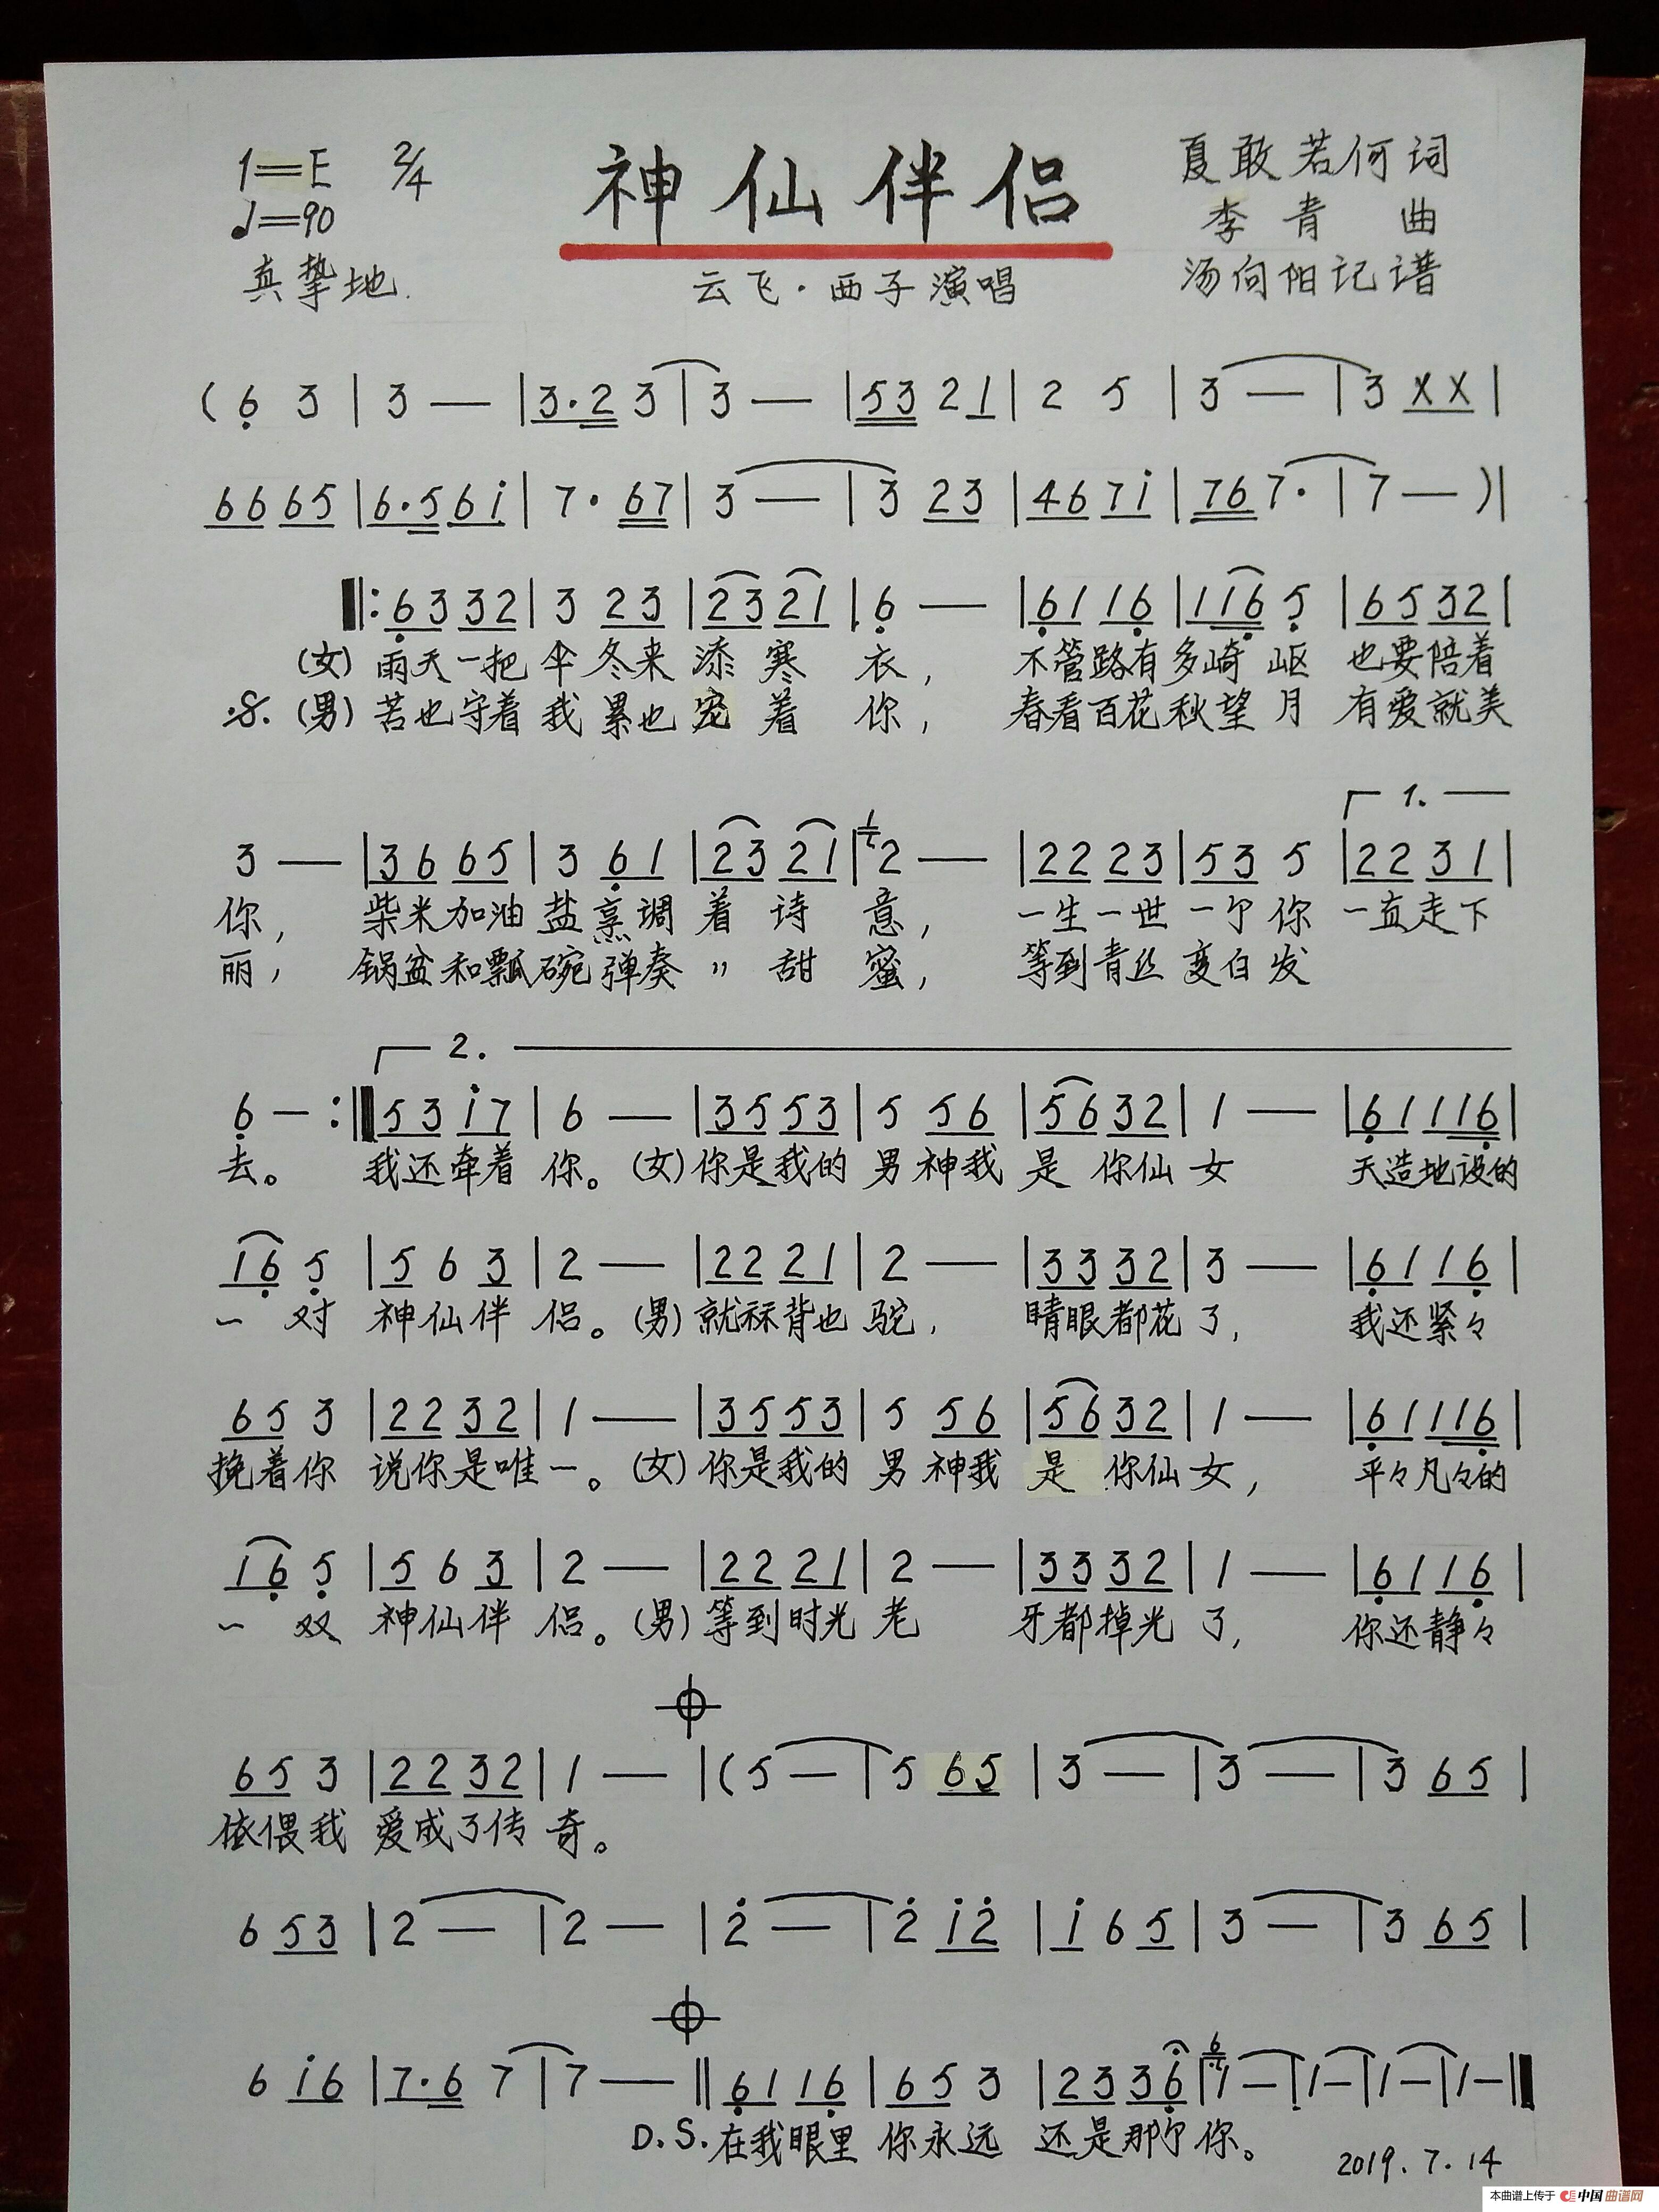 1=E 2/4 神仙伴侣 夏敢若何词
♩=90 李青 曲
真挚地. 云飞·西子演唱 汤向阳记谱
( 6̣ 3 | 3 — | 3·2 3 | 3 — | 53 21 | 2 5 | 3 — | 3 XX |
66 65 | 6·5 6i | 7· 67 | 3 — | 3 23 | 46 7i | 76 7· | 7 — ) |
‖: 6̣3 32 | 3 23 | 23 21 | 6̣ — | 6̣1 16̣ | 116̣ 5̣ | 65 32 |
(女) 雨天一把 伞 冬来 添 寒 衣, 不管路有多崎 岖 也要陪着
𝄋. (男) 苦也守着 我 累也 宠 着 你, 春看百花秋望 月 有爱就美
3 — | 36 65 | 3 6̣1 | 23 21 | 2 — | 22 23 | 53 5 | 1. 22 31 |
你, 柴米加油 盐 烹调 着 诗 意, 一生一世 一个 你 一直走下
丽, 锅盆和瓢碗 弹奏 〃 甜 蜜, 等到青丝 变白 发
2.
6̣ — :‖ 53 i7 | 6 — | 35 53 | 5 56 | 56 32 | 1 — | 6̣1 116̣ |
去。 我还牵着 你。(女)你是我的 男 神我 是 你仙 女 天造地设的
16̣ 5̣ | 5 6 3 | 2 — | 22 21 | 2 — | 33 32 | 3 — | 6̣1 16̣ |
一 对 神仙伴 侣。(男)就秝背也 驼, 睛眼都花 了, 我还紧々
65 3 | 22 32 | 1 — | 35 53 | 5 56 | 56 32 | 1 — | 6̣1 116̣ |
挽着你 说你是唯一。(女)你是我的 男 神我 是 你仙 女, 平々凡々的
16̣ 5̣ | 5 6 3 | 2 — | 22 21 | 2 — | 33 32 | 1 — | 6̣1 16̣ |
一 双 神仙伴 侣。(男)等到时光 老 牙都掉光 了, 你还静々
65 3 | 22 32 | 1 — 𝄌 | ( 5 — | 5 65 | 3 — | 3 — | 3 65 |
依偎我 爱成了传 奇。
6 53 | 2 — | 2 — | 2̇ — | 2̇ i2̇ | i 6 5 | 3 — | 3 65 |
6 i6 | 7·6 7 | 7 — 𝄌 ‖ 6̣1 16̣ | 65 3 | 23 36̇ | 1 — | 1 — | 1 — | 1 — ‖
D.S. 在我眼里 你永远 还是那个 你。
2019.7.14
本曲谱上传于 中国曲谱网